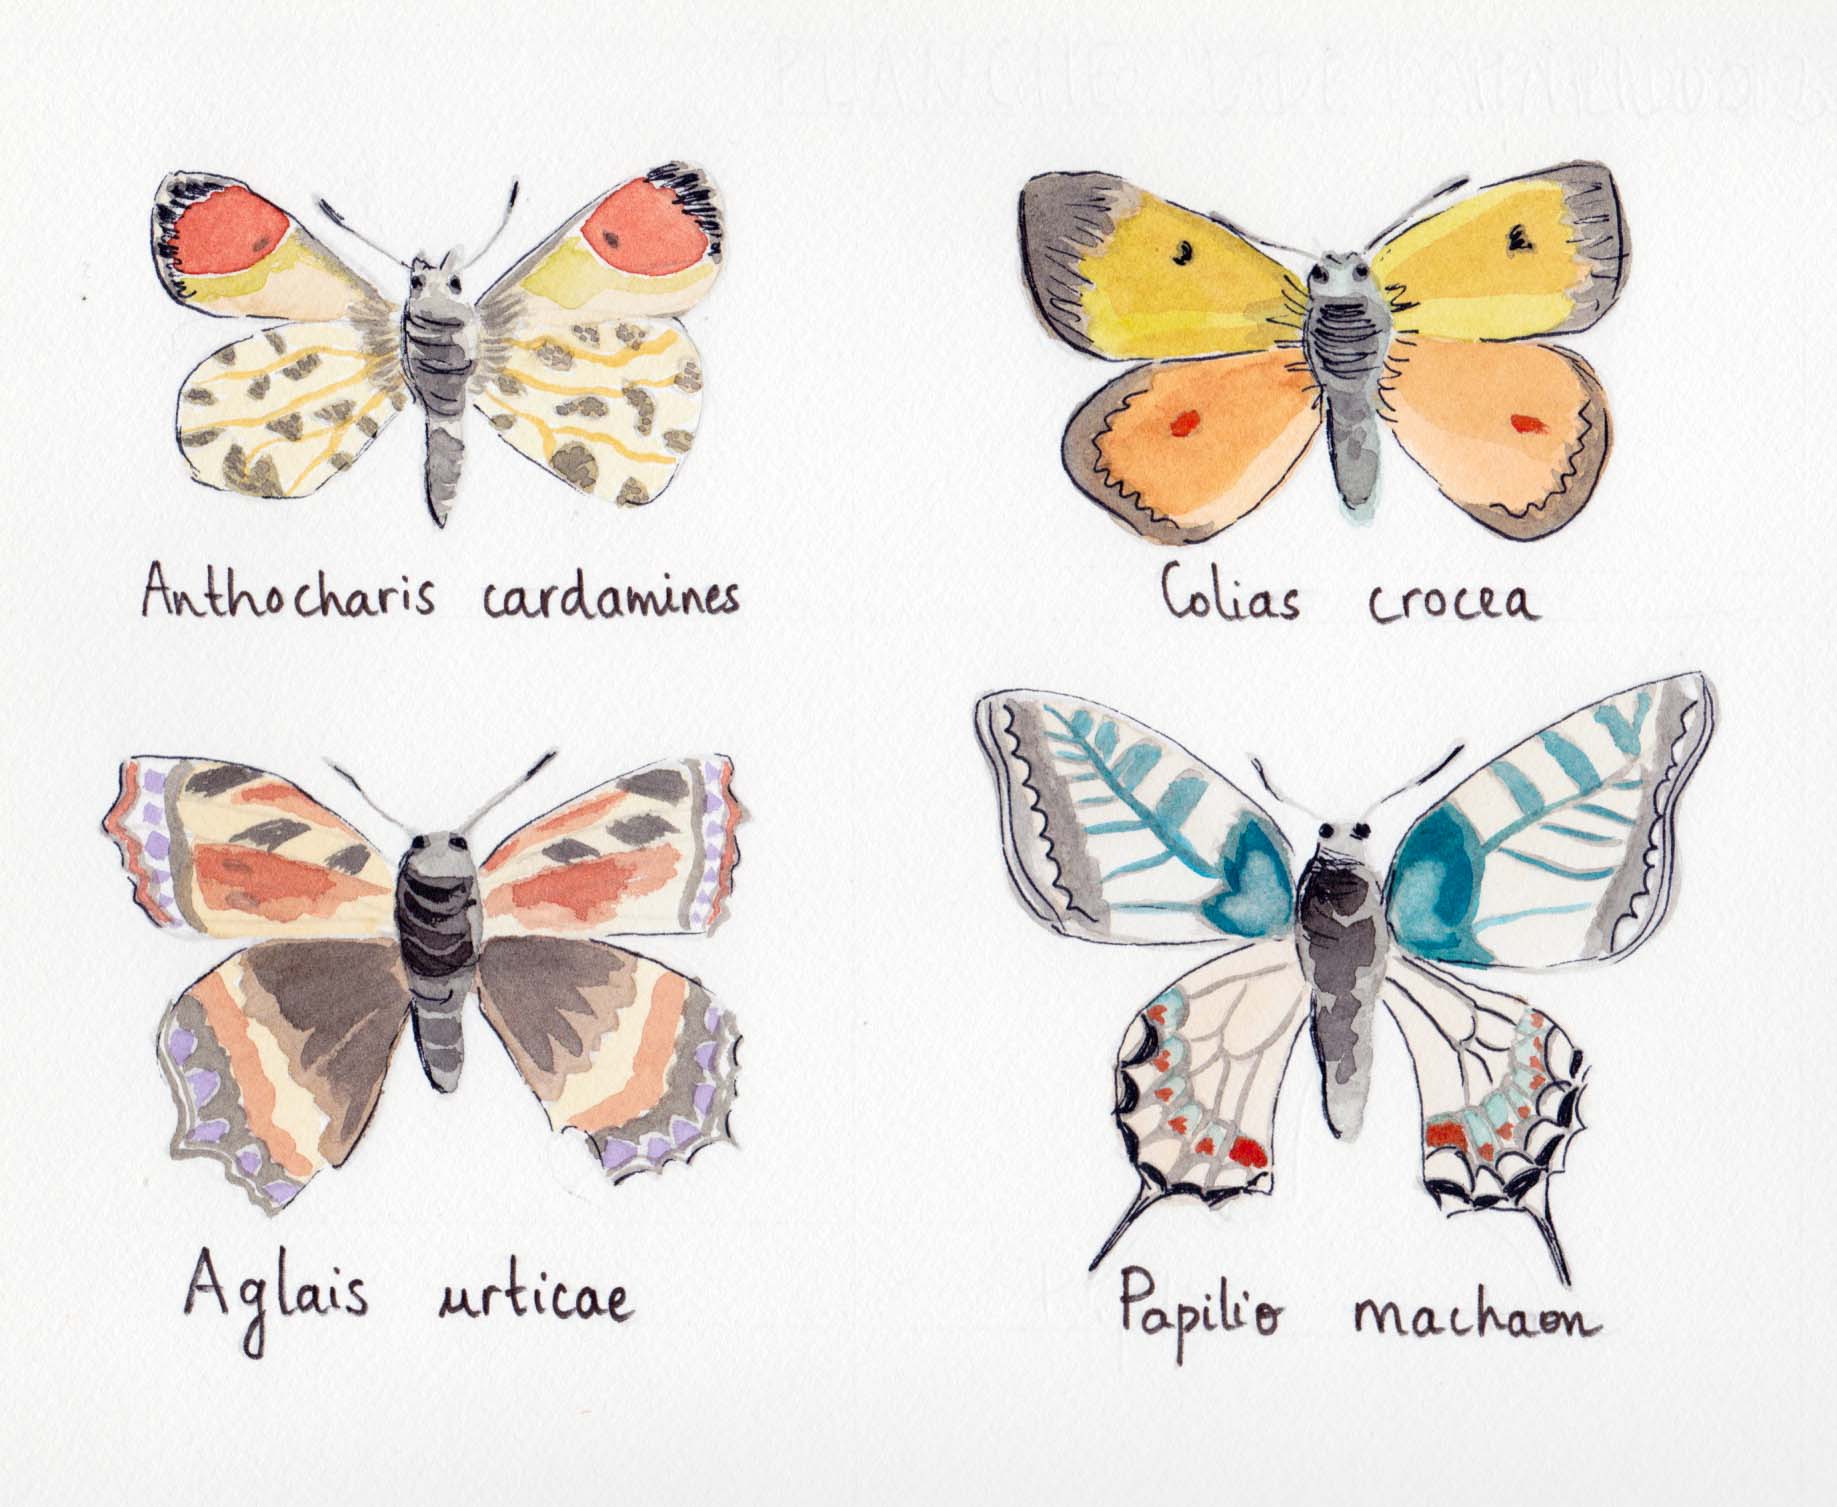 Anthocharis cardamines
Colias crocea
Aglais urticae
Papilio machaon